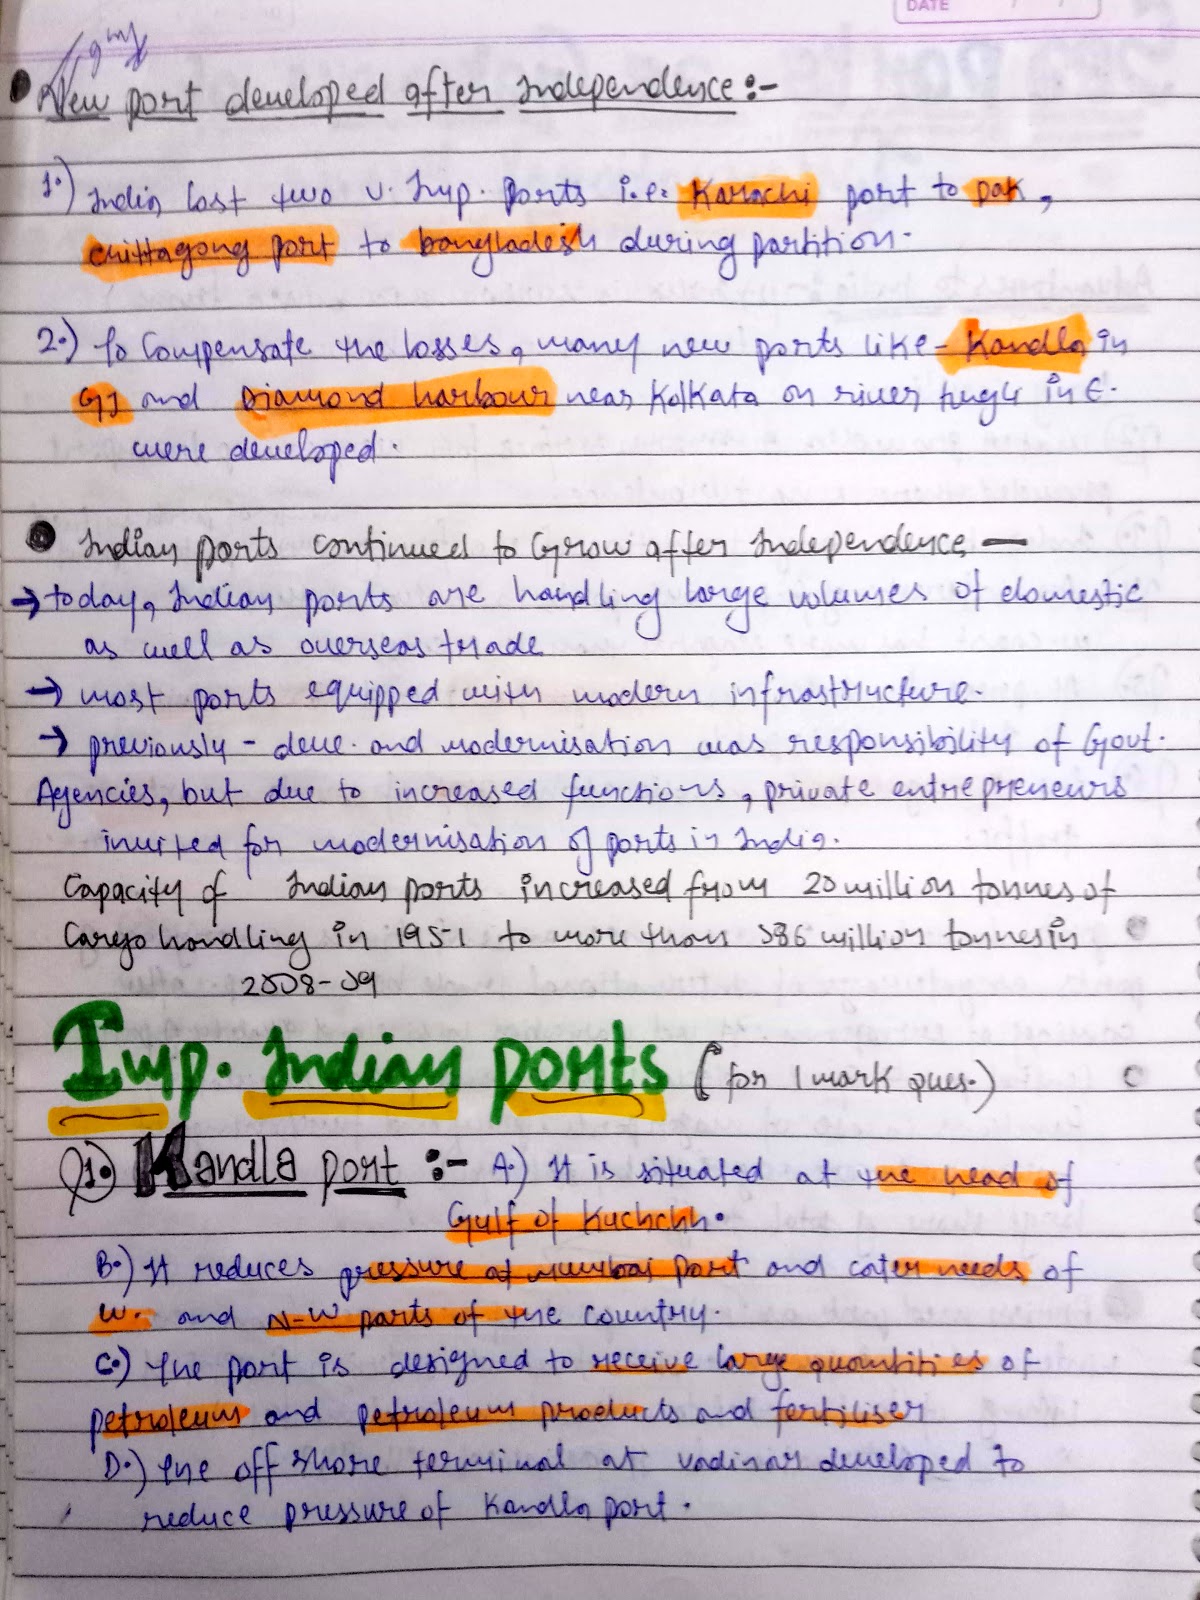 DATE
New port developed after Independence :-
1.) India lost two v. Imp. Ports i.e. Karachi port to pak,
chittagong port to bangladesh during partition.
2.) To Compensate the losses, many new ports like - Kandla in
GJ and Diamond harbour near Kolkata on river hugli in E.
were developed.
Indian ports continued to Grow after Independence —
→ today, Indian ports are handling large volumes of domestic
as well as overseas trade
→ most ports equipped with modern infrastructure.
→ previously - deve. and modernisation was responsibility of Govt.
Agencies, but due to increased functions, private entrepreneurs
invited for modernisation of ports in India.
Capacity of Indian ports increased from 20 million tonnes of
Cargo handling in 1951 to more than 586 million tonnes in
2008-09
Imp. Indian ports (for 1 mark ques.)
Q1. Kandla port :- A.) It is situated at the head of
Gulf of Kuchchh.
B.) It reduces pressure at mumbai port and cater needs of
W. and N-W parts of the country.
C.) The port is designed to receive large quantities of
petroleum and petroleum products and fertiliser
D.) The off shore terminal at vadinar developed to
reduce pressure of Kandla port.